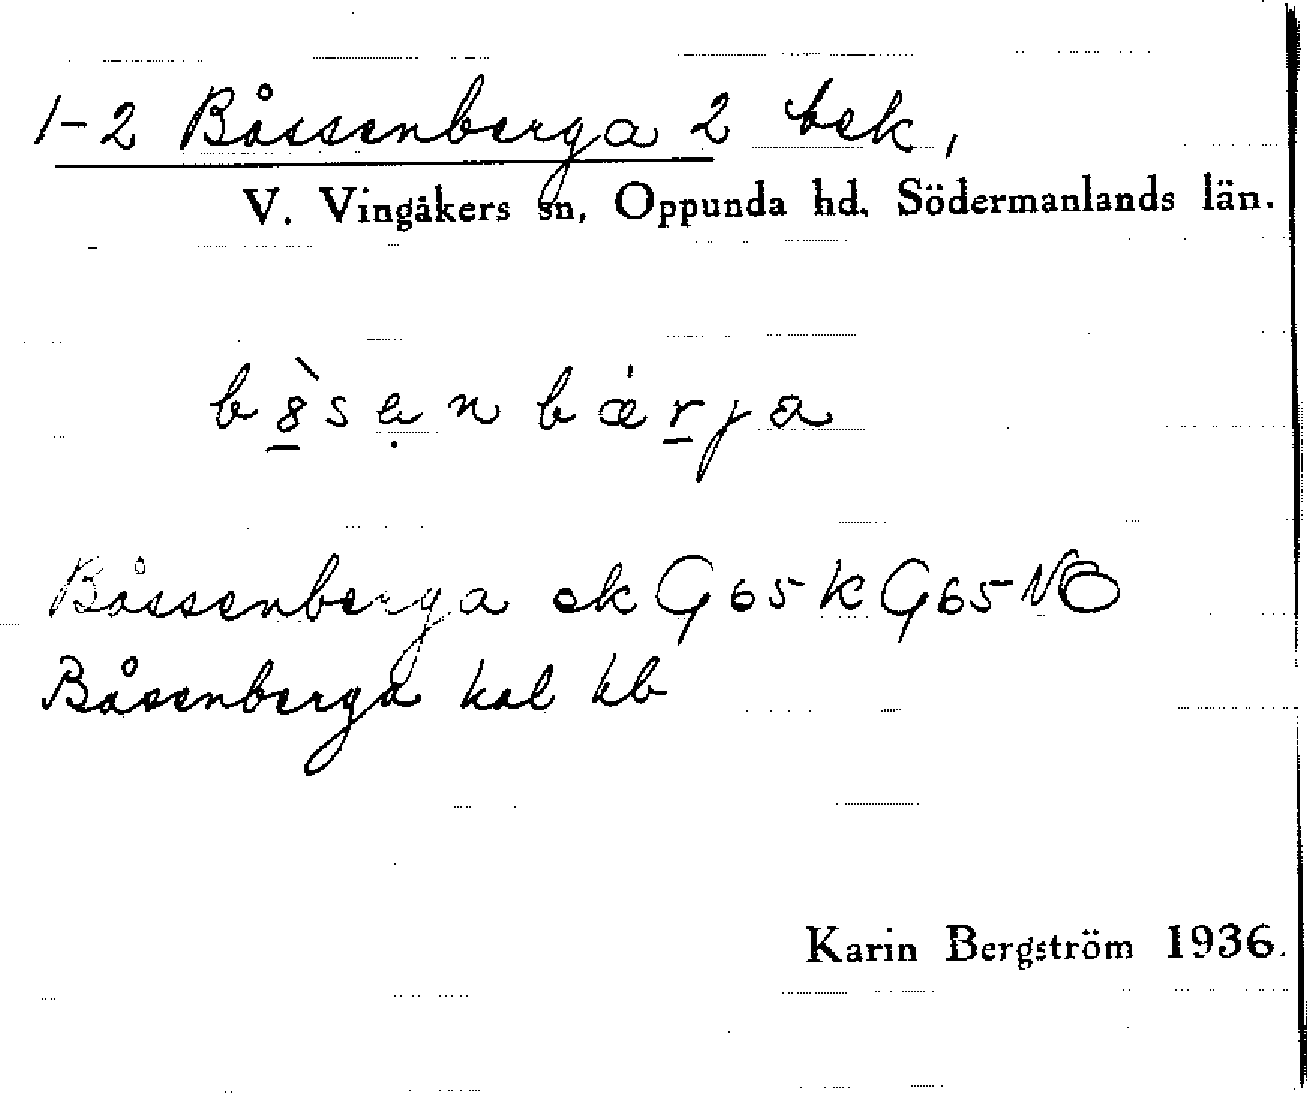 1-2 Båssenberga 2 bek,
V. Vingåkers sn, Oppunda hd. Södermanlands län.
bsenbærja
Båssenberga ek G65k G65NO
Båsenberga kal kb
Karin Bergström 1936.